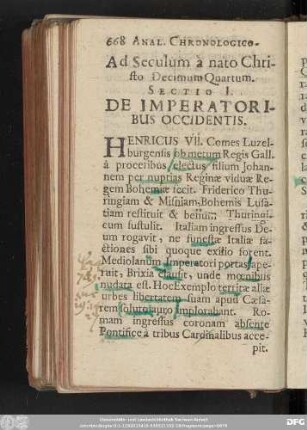 668 ANAL. CHRONOLOGICO-
Ad Seculum à nato Chri-
sto Decimum Quartum.
SECTIO I.
DE IMPERATORI-
BUS OCCIDENTIS.
HENRICUS VII. Comes Luzel-
burgensis ob metum Regis Gall.
à proceribus electus filium Johan-
nem per nuptias Reginæ viduæ Re-
gem Bohemiæ fecit. Friderico Thu-
ringiam & Misniam, Bohemis Lusa-
tiam restituit & bellum Thuringi-
cum sustulit. Italiam ingressus De-
um rogavit, ne funestæ Italiæ fa-
ctiones sibi quoque exitio forent.
Mediolanum Imperatori portas ape-
ruit, Brixia clausit, unde mœnibus
nudata est. Hoc Exemplo territæ aliæ
urbes libertatem suam apud Cæsa-
rem implorabant. Ro-
mam ingressus coronam absente
Pontifice à tribus Cardinalibus acce-
pit.